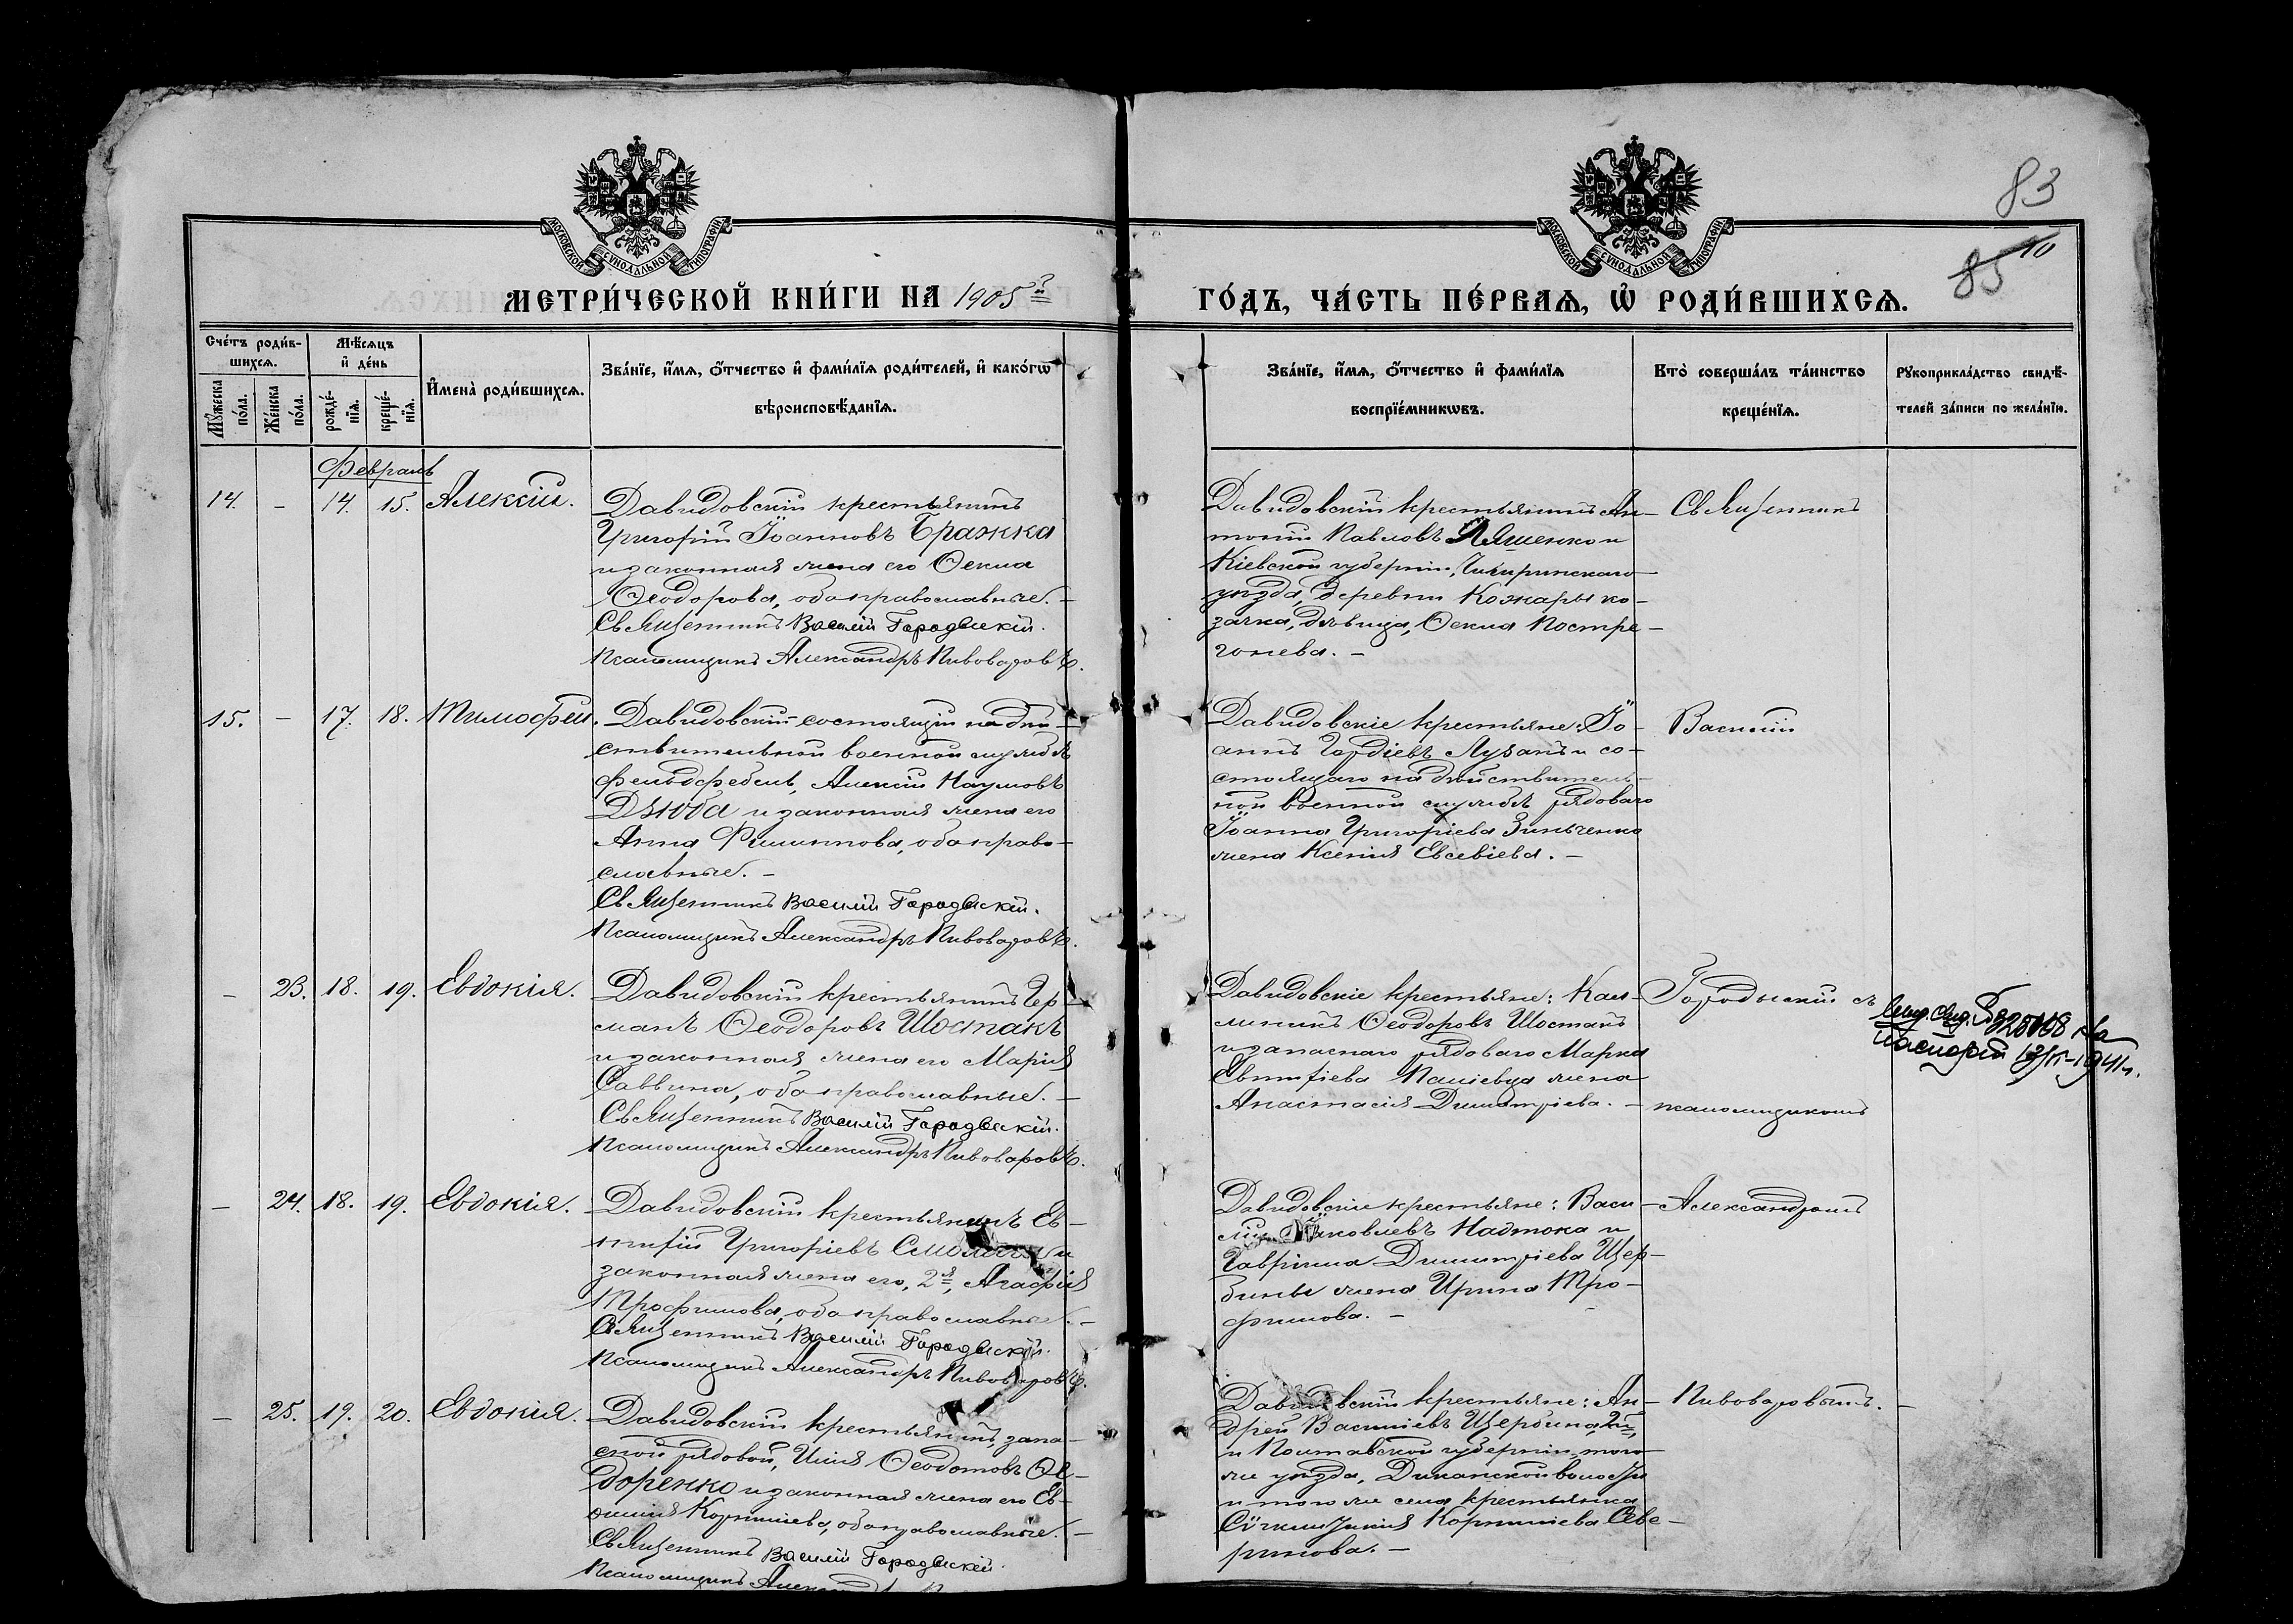 83
85 10
МОСКОВСКОЙ СѴНОДАЛЬНОЙ ТИПОГРАФІИ
МОСКОВСКОЙ СѴНОДАЛЬНОЙ ТИПОГРАФІИ
МЕТРИ́ЧЕСКОЙ КНИ́ГИ НА 1905й
ГО́ДЪ, ЧА́СТЬ ПЕ́РВАѦ, Ѡ҆ РОДИ́ВШИХСѦ.
Сче́тъ роди́в-
шихсѧ.
Мꙋ́жеска по́ла.
Же́нска по́ла.
Мѣ́сѧцъ
и҆ де́нь
рожде́-нїѧ.
креще́-нїѧ.
И҆мена̀ роди́вшихсѧ.
Зва́нїе, и҆́мѧ, ѻ҆́тчество и҆ фами́лїѧ роди́телей, и҆ како́гѡ
вѣроисповѣ́данїѧ.
Зва́нїе, и҆́мѧ, ѻ҆́тчество и҆ фами́лїѧ
воспрїе́мникѡвъ.
Кто̀ соверша́лъ та́инство
креще́нїѧ.
Рꙋкоприкла́дство свидѣ́-
телей за́писи по жела́нїю.
Февраль
14. - 14. 15. Алексій.
Давидовскій крестьянинъ
Григорій Іоанновъ Бражка
и законная жена его Ѳекла
Ѳеодорова, оба православные. -
Священникъ Василій Городыскій.
Псаломщикъ Александръ Пивоваровъ.
Давидовскій крестьянинъ Ан-
тоній Павловъ Ляшенко и
Кіевской губерніи, Чигиринскаго
уѣзда, деревни Кожары ко-
зачка, дѣвица, Ѳекла Постре-
гонева. -
Священникъ
15. - 17. 18. Тимофей.
Давидовскій состоящій на дѣй-
ствительной военной службѣ
фельдфебель, Алексій Наумовъ
Дзюба и законная жена его
Анна Филиппова, оба право-
славные. -
Священникъ Василій Городыскій.
Псаломщикъ Александръ Пивоваровъ.
Давидовскіе крестьяне: Іо-
аннъ Гордіевъ Лузанъ и со-
стоящаго на дѣйствитель-
ной военной службѣ рядоваго
Іоанна Григоріева Зинченко
жена Ксенія Евсевіева. -
Василій
- 23. 18. 19. Евдокія.
Давидовскій крестьянинъ Гер-
манъ Ѳеодоровъ Шостакъ
и законная жена его Марія
Саввина, оба православные. -
Священникъ Василій Городыскій.
Псаломщикъ Александръ Пивоваровъ.
Давидовскіе крестьяне: Кал-
линикъ Ѳеодоровъ Шостакъ
и запаснаго рядоваго Марка
Евтихіева жена
Анастасія Димитріева. -
Городыскій съ
псаломщикомъ
на
паспорт 1941г.
- 24. 18. 19. Евдокія.
Давидовскій крестьянинъ Ев-
тихій Григоріевъ и
законная жена его, 2я, Агафія
Трофимова, оба православные. -
Священникъ Василій Городыскій.
Псаломщикъ Александръ Пивоваровъ.
Давидовскіе крестьяне: Васи-
лій Яковлевъ Надтока и
Гавріила Димитріева Щер-
бины жена Ирина Тро-
фимова. -
Александромъ
- 25. 19. 20. Евдокія.
Давидовскій крестьянинъ, запа-
сной рядовой, Илія Ѳеодотовъ Ѳе-
доренко и законная жена его Ев-
ѳимія Корниліева, оба православные. -
Священникъ Василій Городыскій.
Псаломщикъ
Давидовскій крестьяне: Ан-
дрей Василіевъ Щербина,
и Полтавской губерніи, того
же уѣзда, Диканской волости
и того же села крестьянка
Корниліева Севе-
ринова. -
Пивоваровымъ. -